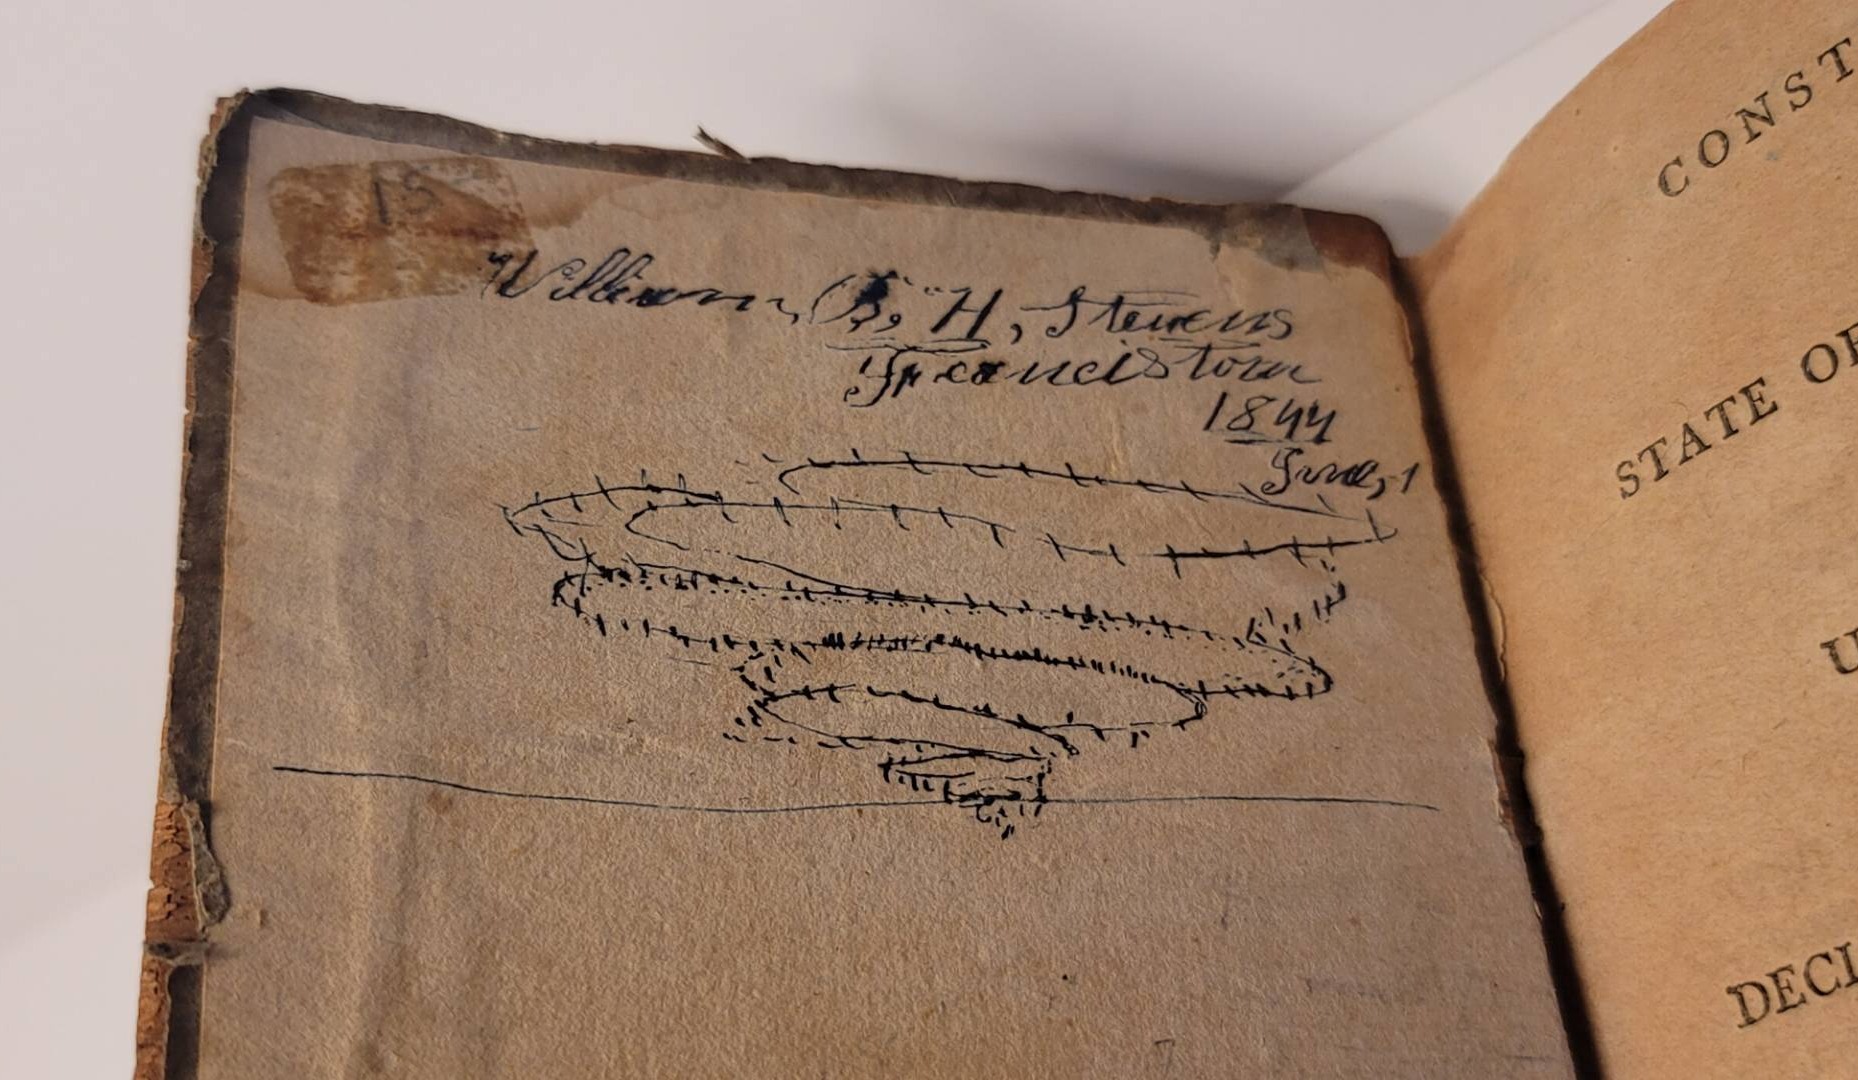 15
William, B, "H, Stevens
Francistown
1844
June, 1
CONST
STATE OF
U
DECL